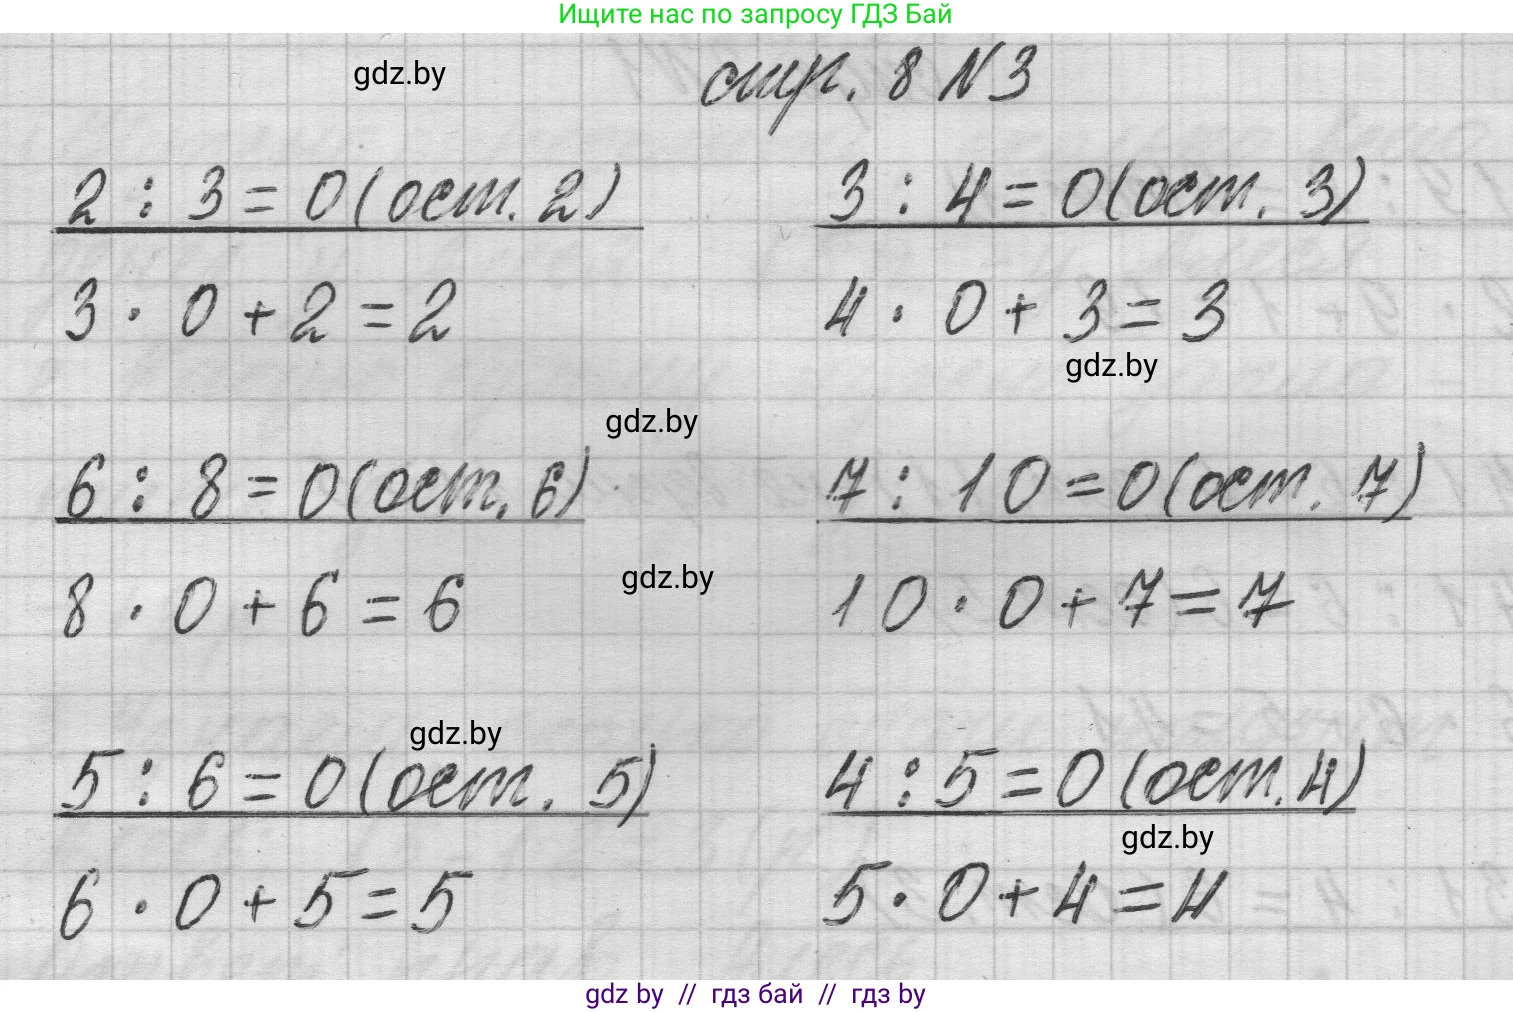 Ищите нас по запросу ГДЗ Бай
gdz.by
стр. 8 №3
2 : 3 = 0 (ост. 2)
3 : 4 = 0 (ост. 3)
3 · 0 + 2 = 2
4 · 0 + 3 = 3
gdz.by
gdz.by
6 : 8 = 0 (ост. 6)
7 : 10 = 0 (ост. 7)
gdz.by
8 · 0 + 6 = 6
10 · 0 + 7 = 7
gdz.by
5 : 6 = 0 (ост. 5)
4 : 5 = 0 (ост. 4)
gdz.by
6 · 0 + 5 = 5
5 · 0 + 4 = 4
gdz by // гдз бай // гдз by